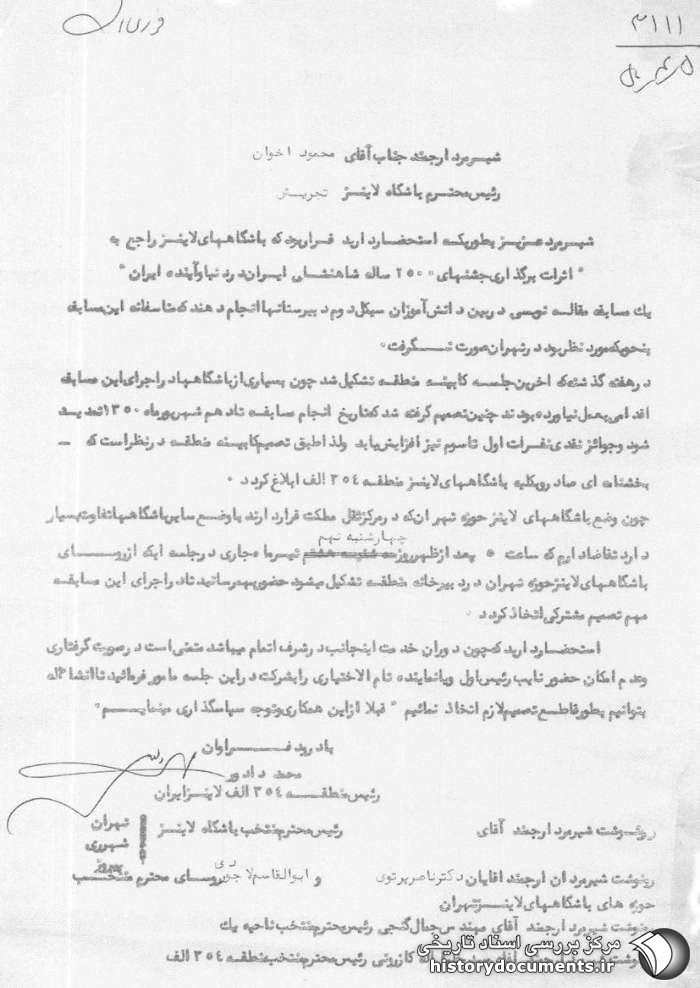 فوری است
۳۱۱۱
شیرمرد ارجمند جناب آقای محمود اخوان
رئیس محترم باشگاه لاینز تجریش
شیرمرد عزیز بطوریکه استحضار دارید قرار بود که باشگاههای لاینز راجع به
" اثرات برگذاری جشنهای ۲۵۰۰ ساله شاهنشاهی ایران در دنیا و آینده ایران "
یك مسابقه مقاله نویسی در بین دانش آموزان سیکل دوم دبیرستانها انجام دهند که متاسفانه این مسابقه
بنحویکه مورد نظر بود در تهران صورت نگرفت.
در هفته گذشته که اخرین جلسه کابینه منطقه تشکیل شد چون بسیاری از باشگاهها در اجرای این مسابقه
اقدامی بعمل نیاورده بودند چنین تصمیم گرفته شد که تاریخ انجام مسابقه تا دهم شهریور ماه ۱۳۵۰ تمدید
شود و جوائز نقدی نفرات اول تا سوم نیز افزایش بیابد ولذا طبق تصمیم کابینه منطقه در نظر است که
بخشنامه ای صادر و بکلیه باشگاههای لاینز منطقه ۳۵٤ الف ابلاغ گردد.
چون وضع باشگاههای لاینز حوزه تهران که در مرکز ثقل مملکت قرار دارند با وضع سایر باشگاهها تفاوت بسیار
چهارشنبه نهم
دارد تقاضا دارم که ساعت ۵ بعد از ظهر روز سه شنبه هشتم تیرماه جاری در جلسه ایکه از روسای
باشگاههای لاینز حوزه تهران در دبیرخانه منطقه تشکیل میشود حضور بهمرسانید تا در اجرای این مسابقه
مهم تصمیم مشترکی اتخاذ گردد.
استحضار دارید که چون دوران خدمت اینجانب در شرف اتمام میباشد متمنی است در صورت گرفتاری
وعدم امکان حضور نایب رئیس اول ویا نماینده تام الاختیاری را بشرکت در این جلسه مامور فرمائید تا انشاءاله
بتوانیم بطور قاطع تصمیم لازم اتخاذ نمائیم " قبلا از این همکاری و توجه سپاسگذاری مینمایم.
با درود فراوان
محمد دادور
رئیس منطقه ۳۵٤ الف لاینز ایران
رونوشت شیرمرد ارجمند آقای رئیس محترم منتخب باشگاه لاینز
تهران
شهرری
رونوشت شیرمردان ارجمند اقایان دکتر ناصر پرتوی و ابوالقاسم لاجوردی روسای محترم منتخب
حوزه های باشگاههای لاینز تهران
رونوشت شیرمرد ارجمند آقای مهندس جمال گنجی رئیس محترم منتخب ناحیه یك
رونوشت شیرمرد ارجمند آقای کازرونی رئیس محترم منتخب منطقه ۳۵٤ الف
مرکز بررسی اسناد تاریخی
historydocuments.ir